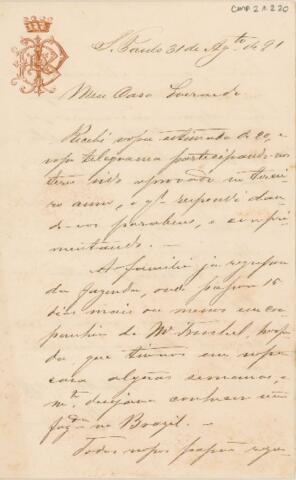 CMP 2.1.220
S. Paulo 31 de Agto 1891
Meu Caro Lacerda
Recebi vossa estimada de 20, e
vosso telegramma participando-nos
teres sido approvado no tercei-
ro anno, o qual respondi dan-
do-vos parabens, e compri-
mentando. —
A familia ja regressou
da fazenda, onde passou 15
dias mais ou menos em com-
panhia de Mr
da que tivemos em nossa
casa algũas semanas, e
mto desejava conhecer uma
fazda no Brazil. —
Todos nossos passão regu-